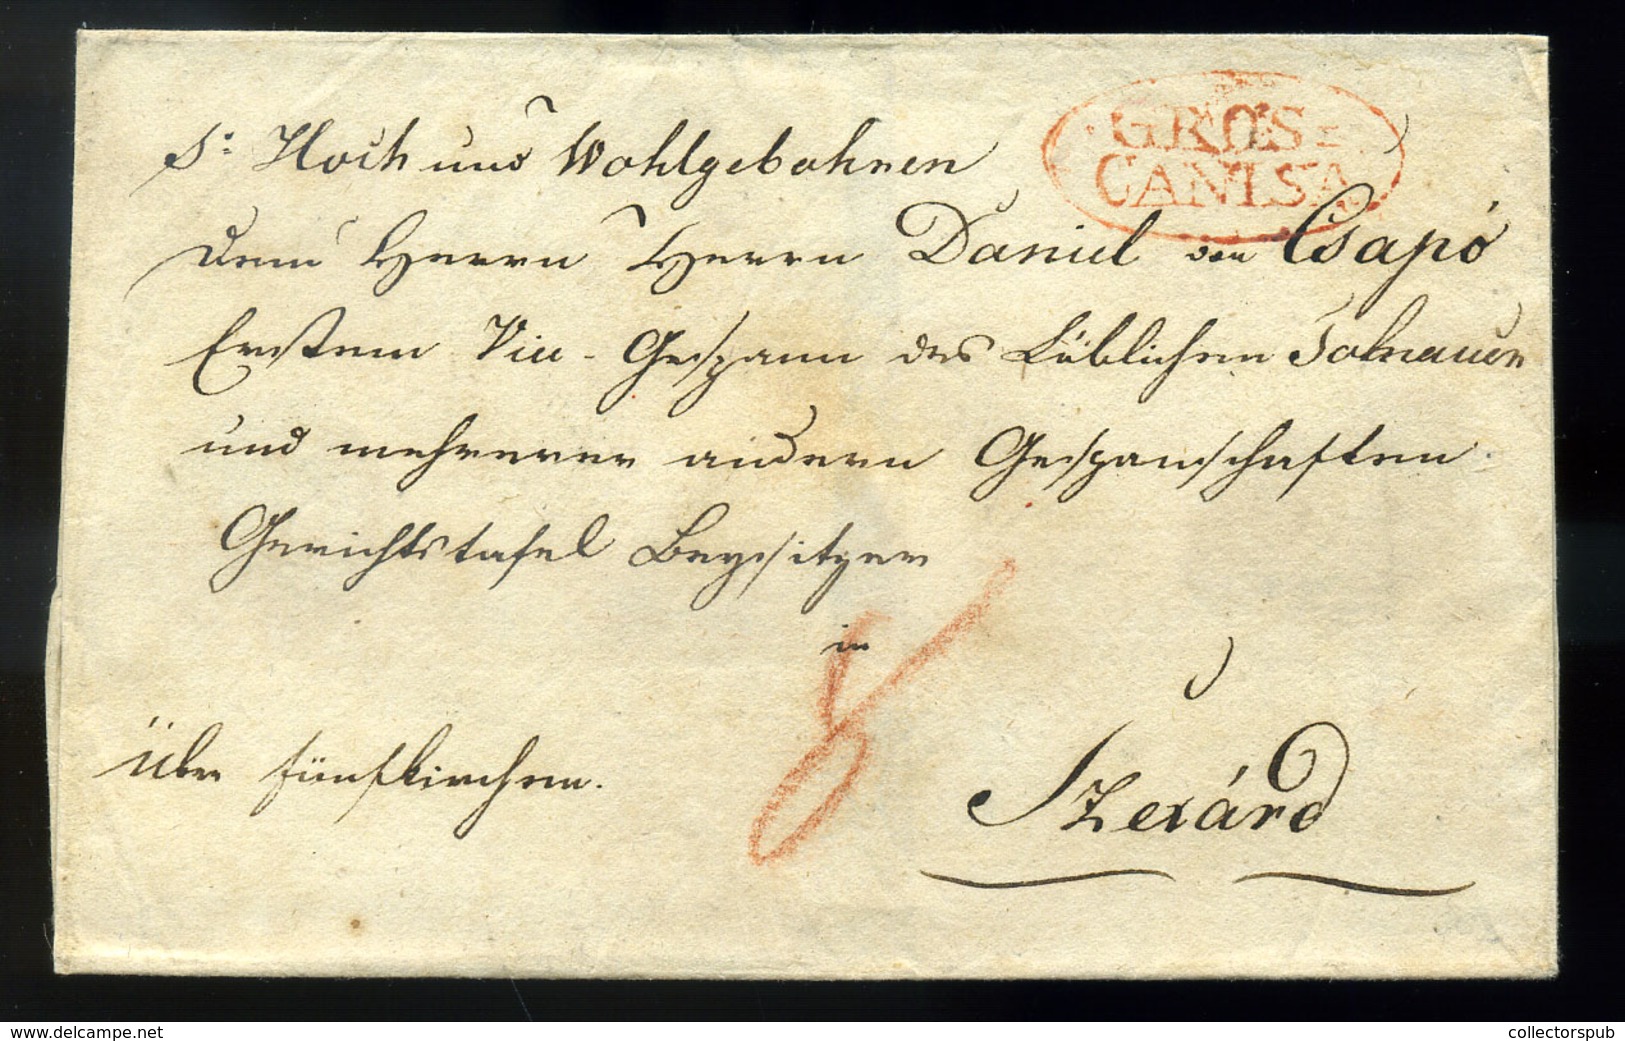 GROS=
CANISA
S: Hoch und Wohlgebohrnen
dem Herrn Herrn Daniel von Csapó
Ersten Vice-Gespann des Löblichen Tolnauer
und mehrerer andern Gespanschaften
Gerichtstafel Beysitzer
in
8
Über Fünfkirchen.
Szexárd
www.delcampe.net
collectorspub